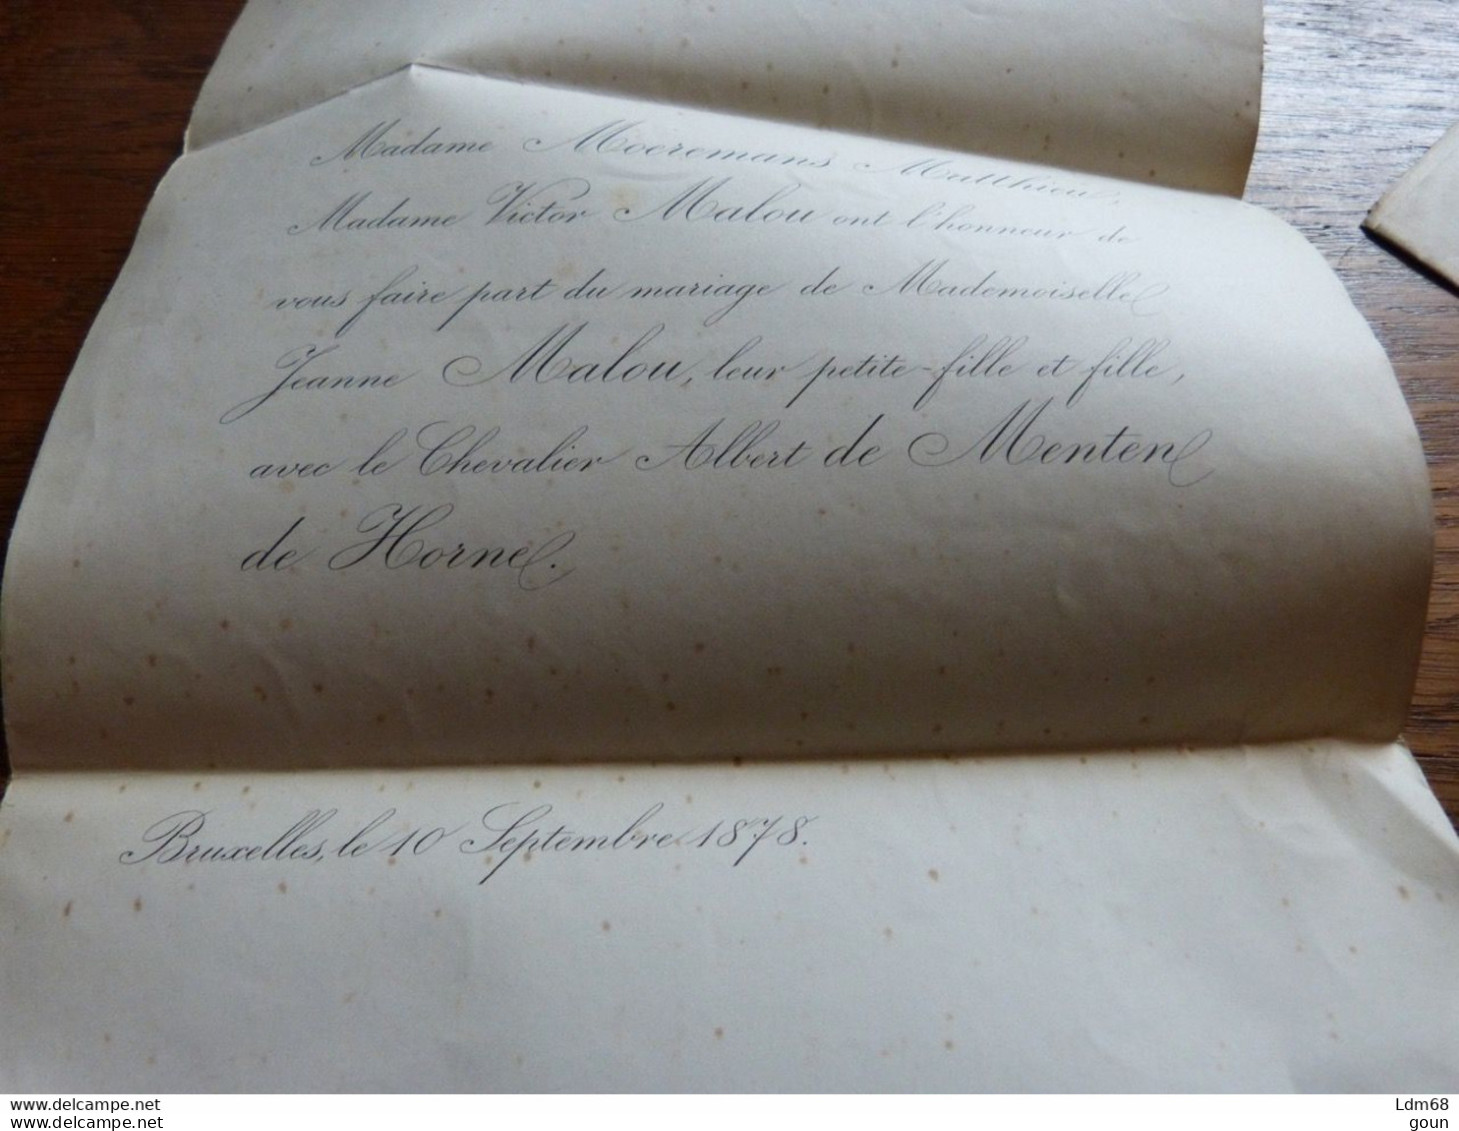 Madame Moeremans Matthieu,
Madame Victor Malou ont l'honneur de
vous faire part du mariage de Mademoiselle
Jeanne Malou, leur petite-fille et fille,
avec le Chevalier Albert de Menten
de Horne.
Bruxelles, le 10 Septembre 1878.
www.delcampe.net
www.delcampe.net
Ldm68
goun